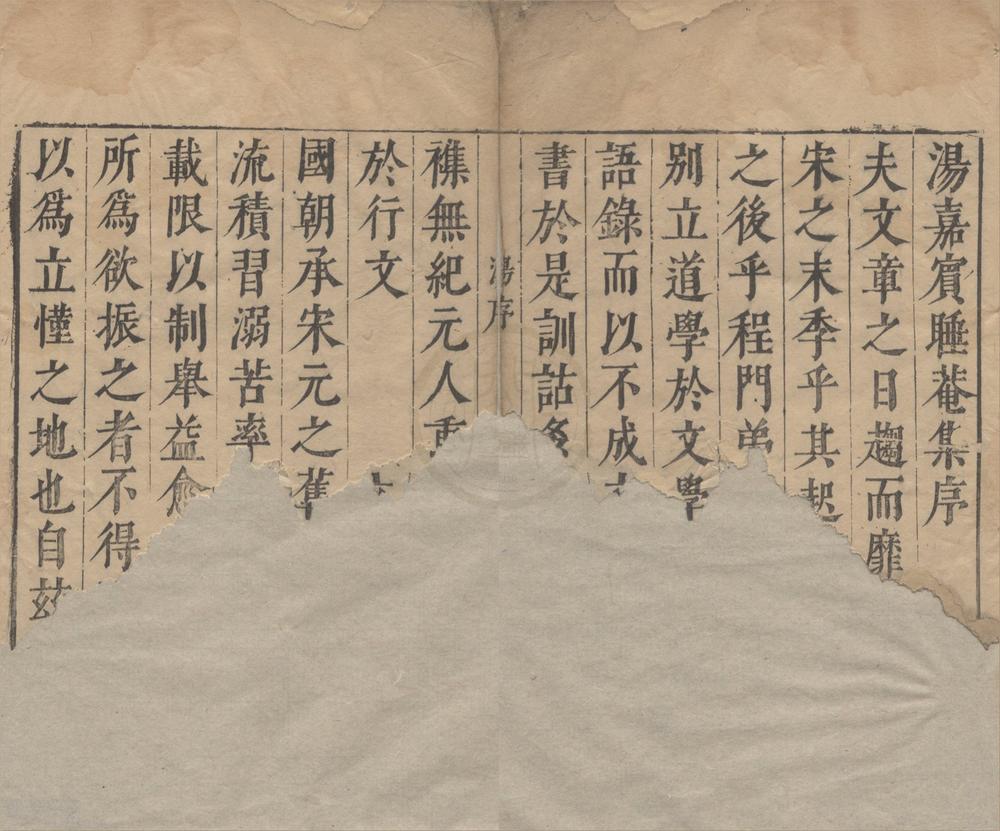 湯嘉賓睡菴集序
夫文章之日趨而靡
宋之末季乎其起
之後乎程門弟
別立道學於文學
語錄而以不成
書於是訓詁
湯序
襍無紀元人
於行文
國朝承宋元之舊
流積習溺苦率
載限以制舉益愈
所爲欲振之者不得
以爲立慬之地也自茲